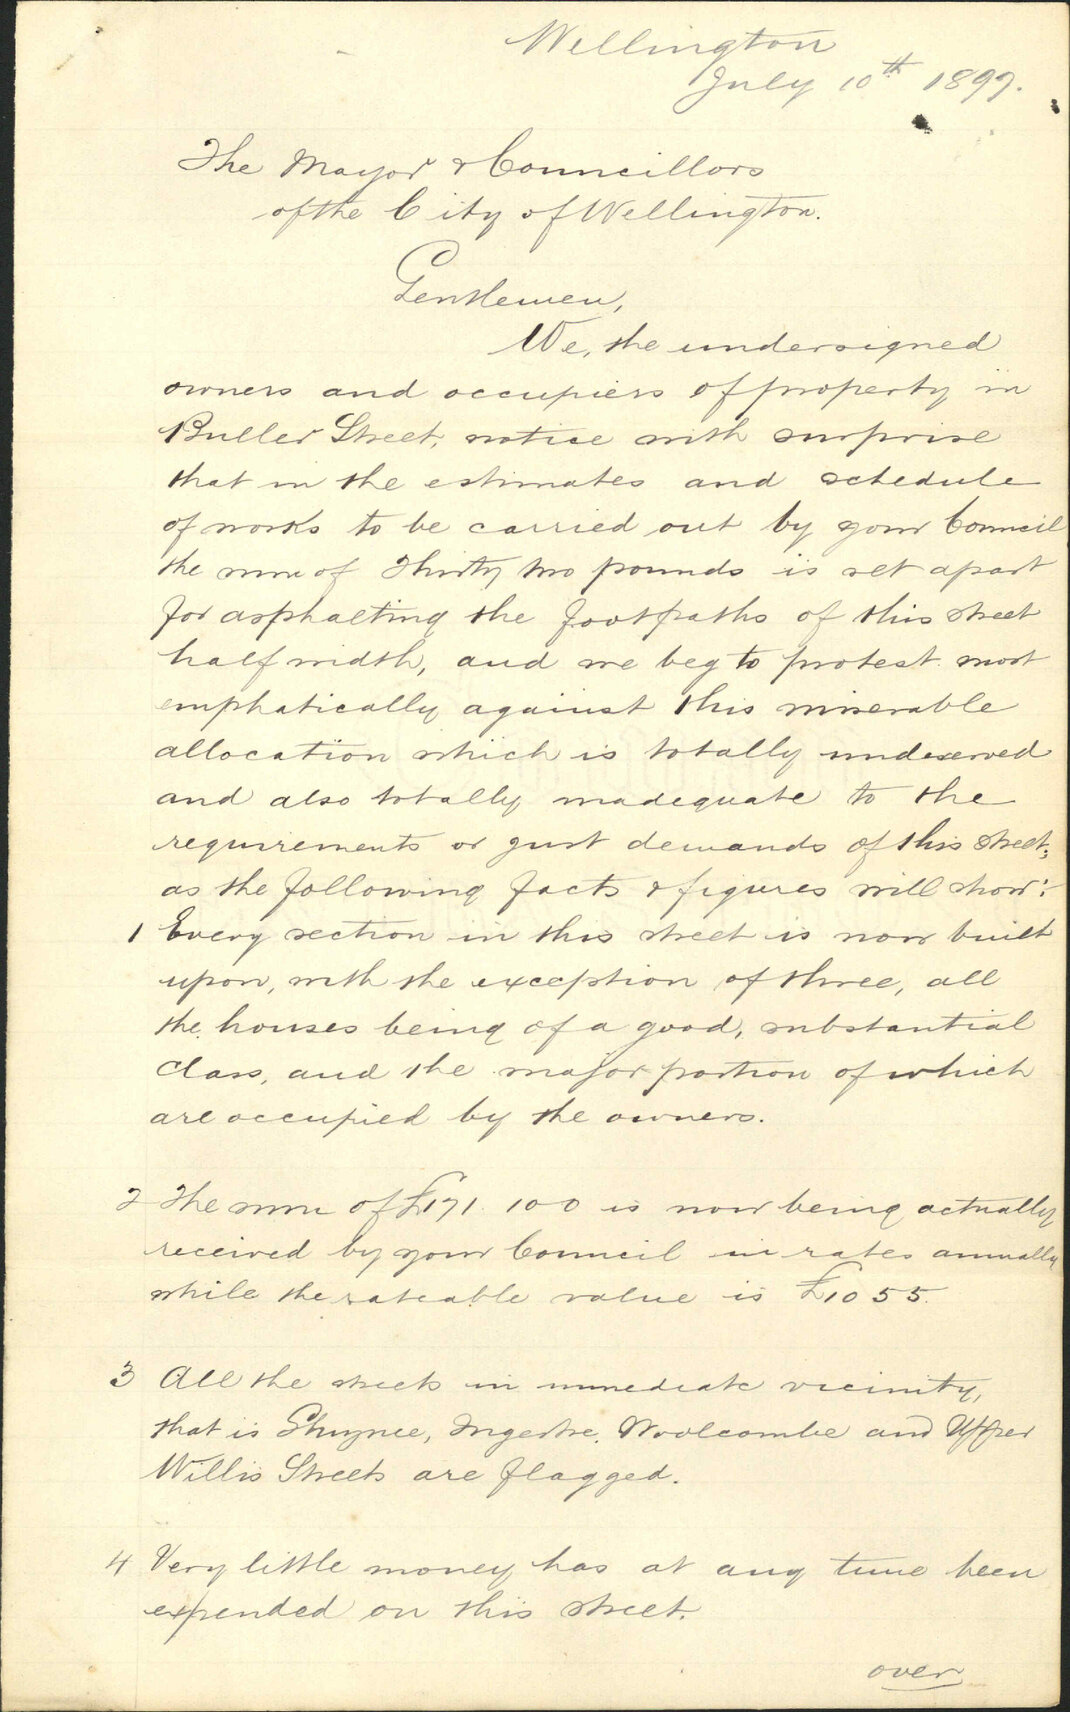 Wellington
July 10th 1897.
The Mayor & Councillors
of the City of Wellington.
Gentlemen,
We, the undersigned
owners and occupiers of property in
Buller Street, notice with surprise
that in the estimates and schedule
of works to be carried out by your Council
the sum of Thirty two pounds is set apart
for asphalting the footpaths of this street
half width, and we beg to protest most
emphatically against this miserable
allocation which is totally undeserved
and also totally inadequate to the
requirements or just demands of this street;
as the following facts & figures will show:
1 Every section in this street is now built
upon, with the exception of three, all
the houses being of a good, substantial
class, and the major portion of which
are occupied by the owners.
2 The sum of £171 10 0 is now being actually
received by your Council in rates annually
while the rateable value is £1055.
3 All the streets in immediate vicinity,
that is Ghuznee, Ingestre, Woolcombe and Upper
Willis Streets are flagged.
4 Very little money has at any time been
expended on this street.
over